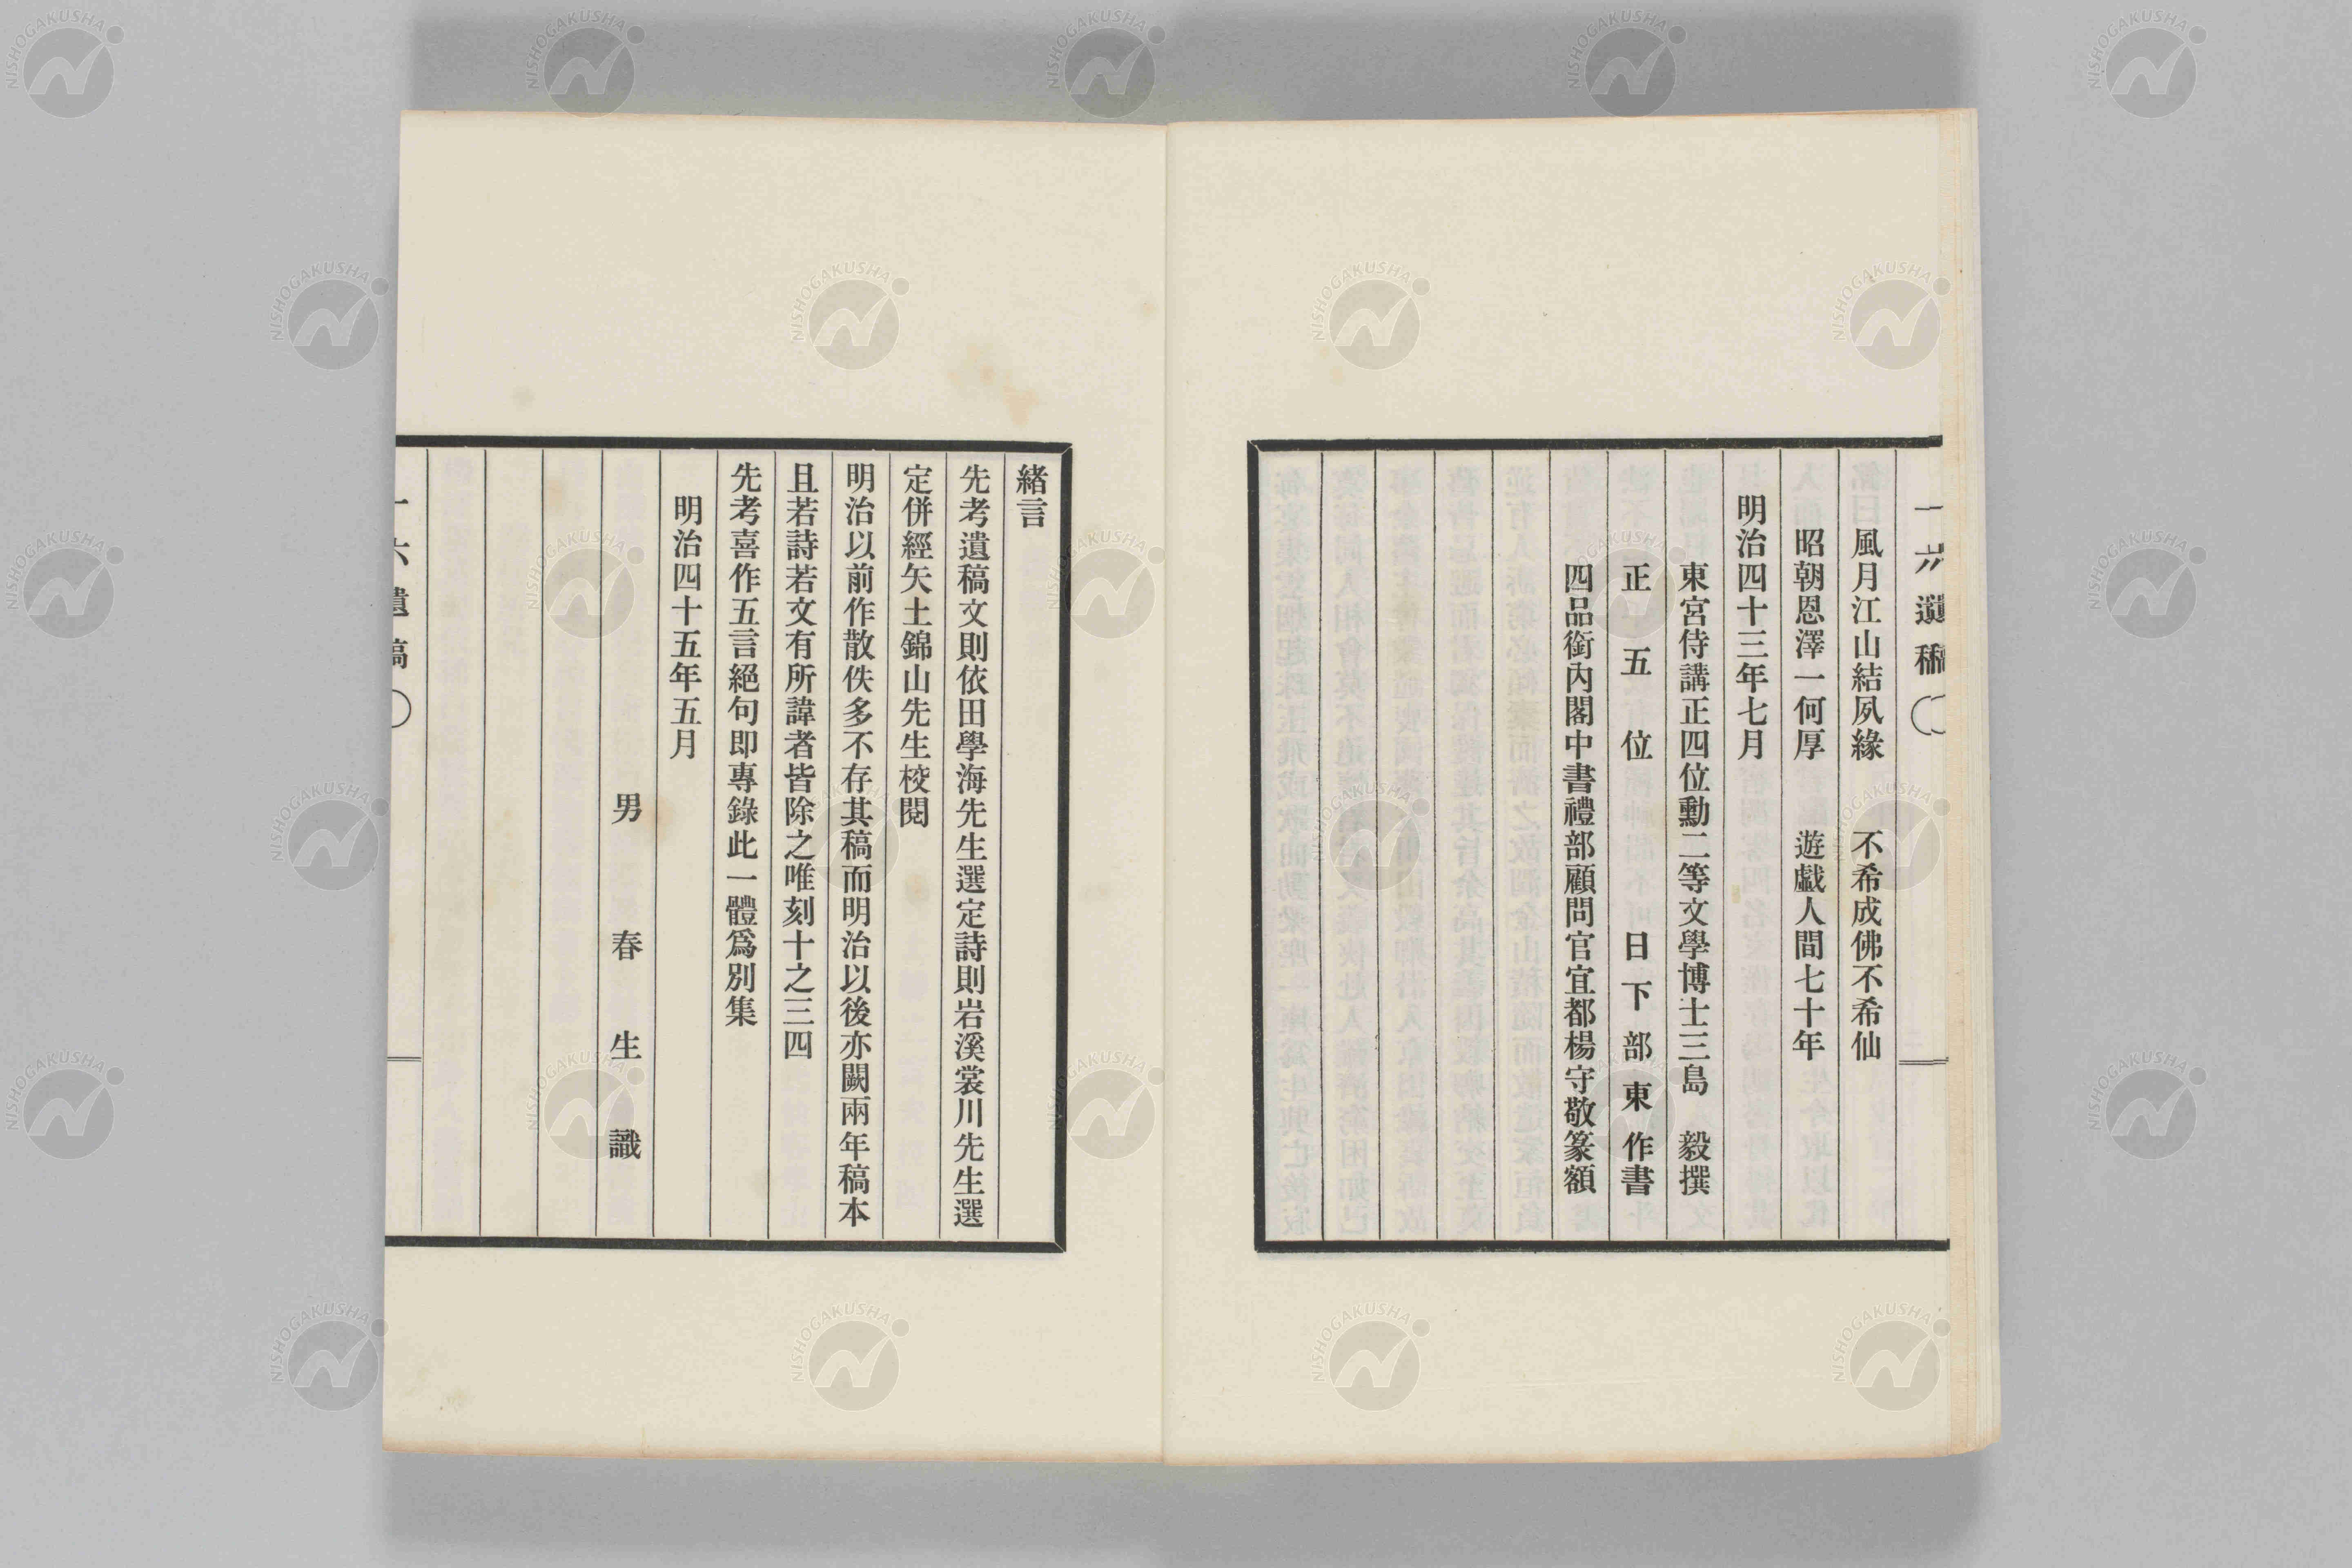 一六遺稿
風月江山結夙緣　不希成佛不希仙
昭朝恩澤一何厚　遊戲人間七十年
明治四十三年七月
東宮侍講正四位勳二等文學博士三島　毅撰
正五位　日下部東作書
四品銜內閣中書禮部顧問官宜都楊守敬篆額
緒言
先考遺稿文則依田學海先生選定詩則岩溪裳川先生選
定併經矢土錦山先生校閱
明治以前作散佚多不存其稿而明治以後亦闕兩年稿本
且若詩若文有所諱者皆除之唯刻十之三四
先考喜作五言絕句即專錄此一體爲別集
明治四十五年五月
男　春　生　識
一六遺稿
NISHOGAKUSHA